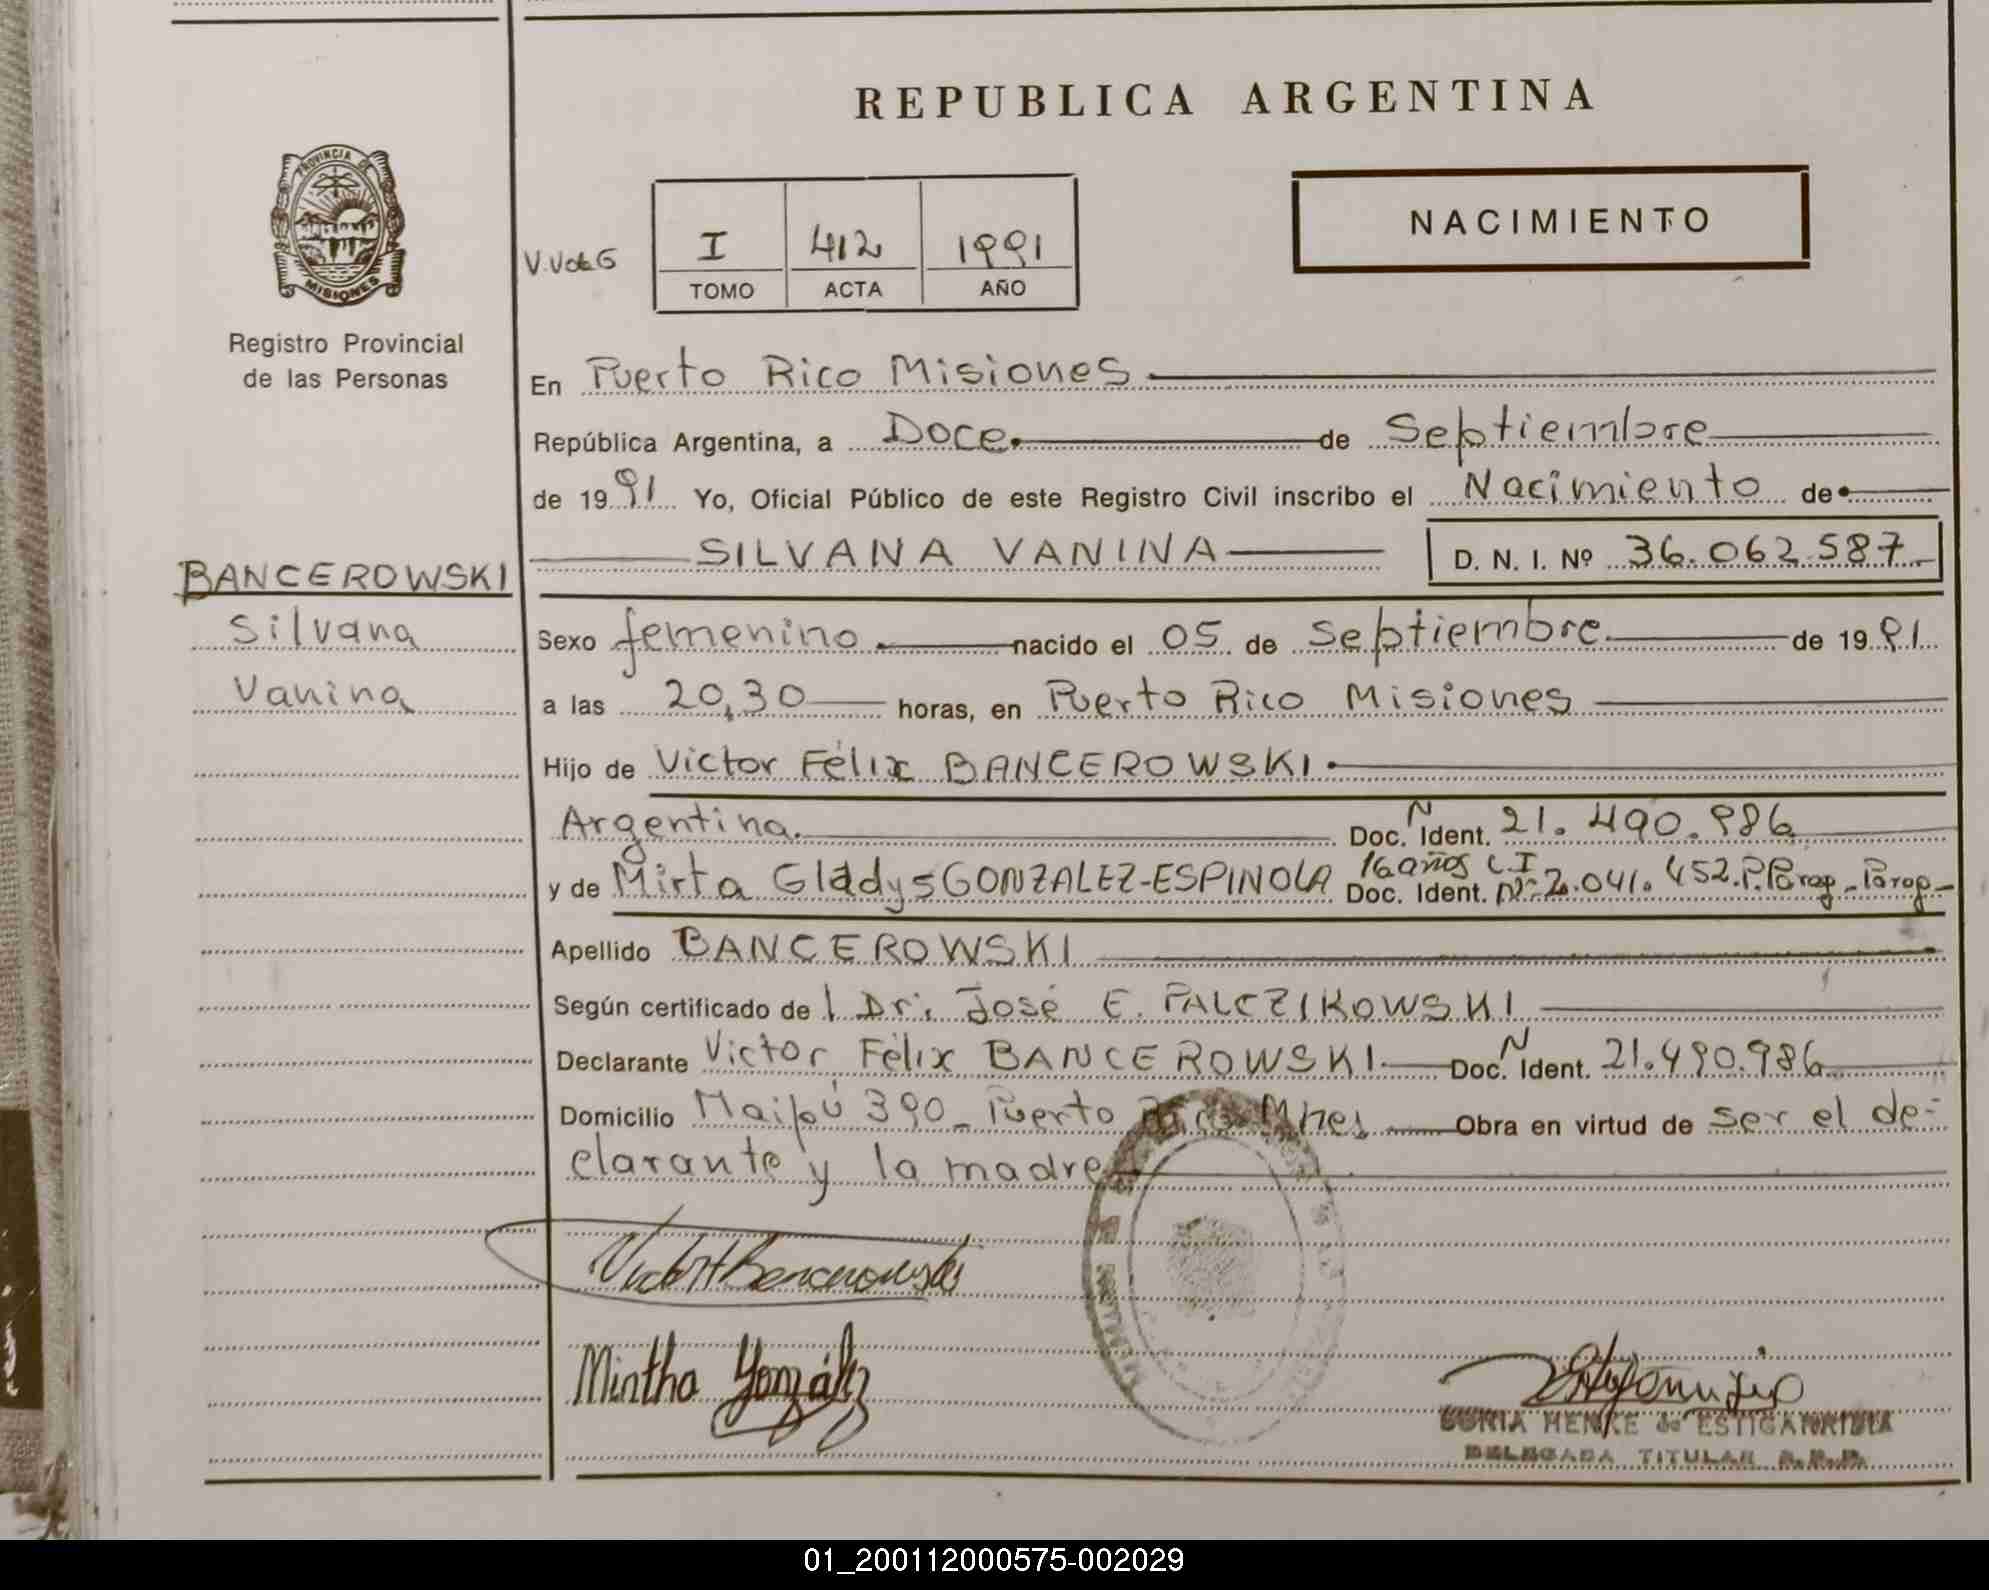 REPUBLICA ARGENTINA
PROVINCIA DE
MISIONES
Registro Provincial
de las Personas
NACIMIENTO
V.VdeG
I 412 1991
TOMO ACTA AÑO
En Puerto Rico Misiones
República Argentina, a Doce de Septiembre
de 1991 Yo, Oficial Público de este Registro Civil inscribo el Nacimiento de
SILVANA VANINA D. N. I. Nº 36.062.587
BANCEROWSKI
Silvana
Vanina
Sexo femenino nacido el 05 de Septiembre de 1991
a las 20,30 horas, en Puerto Rico Misiones
Hijo de Victor Félix BANCEROWSKI
Argentina Doc. N Ident. 21.490.986
y de Mirta Gladys GONZALEZ-ESPINOLA 16 años C.I Doc. Ident. Nº 2.041.452.P.Parag - Parag-
Apellido BANCEROWSKI
Según certificado de l Dr. José E. PALCZIKOWSKI
Declarante Victor Félix BANCEROWSKI Doc. N Ident. 21.490.986
Domicilio Maipú 390 - Puerto Rico Mnes Obra en virtud de ser el de-
clarante y la madre
Victor Bancerowski
Mirtha González
SONIA HENKE de ESTIGARRIBIA
DELEGADA TITULAR R.P.P.
01_200112000575-002029